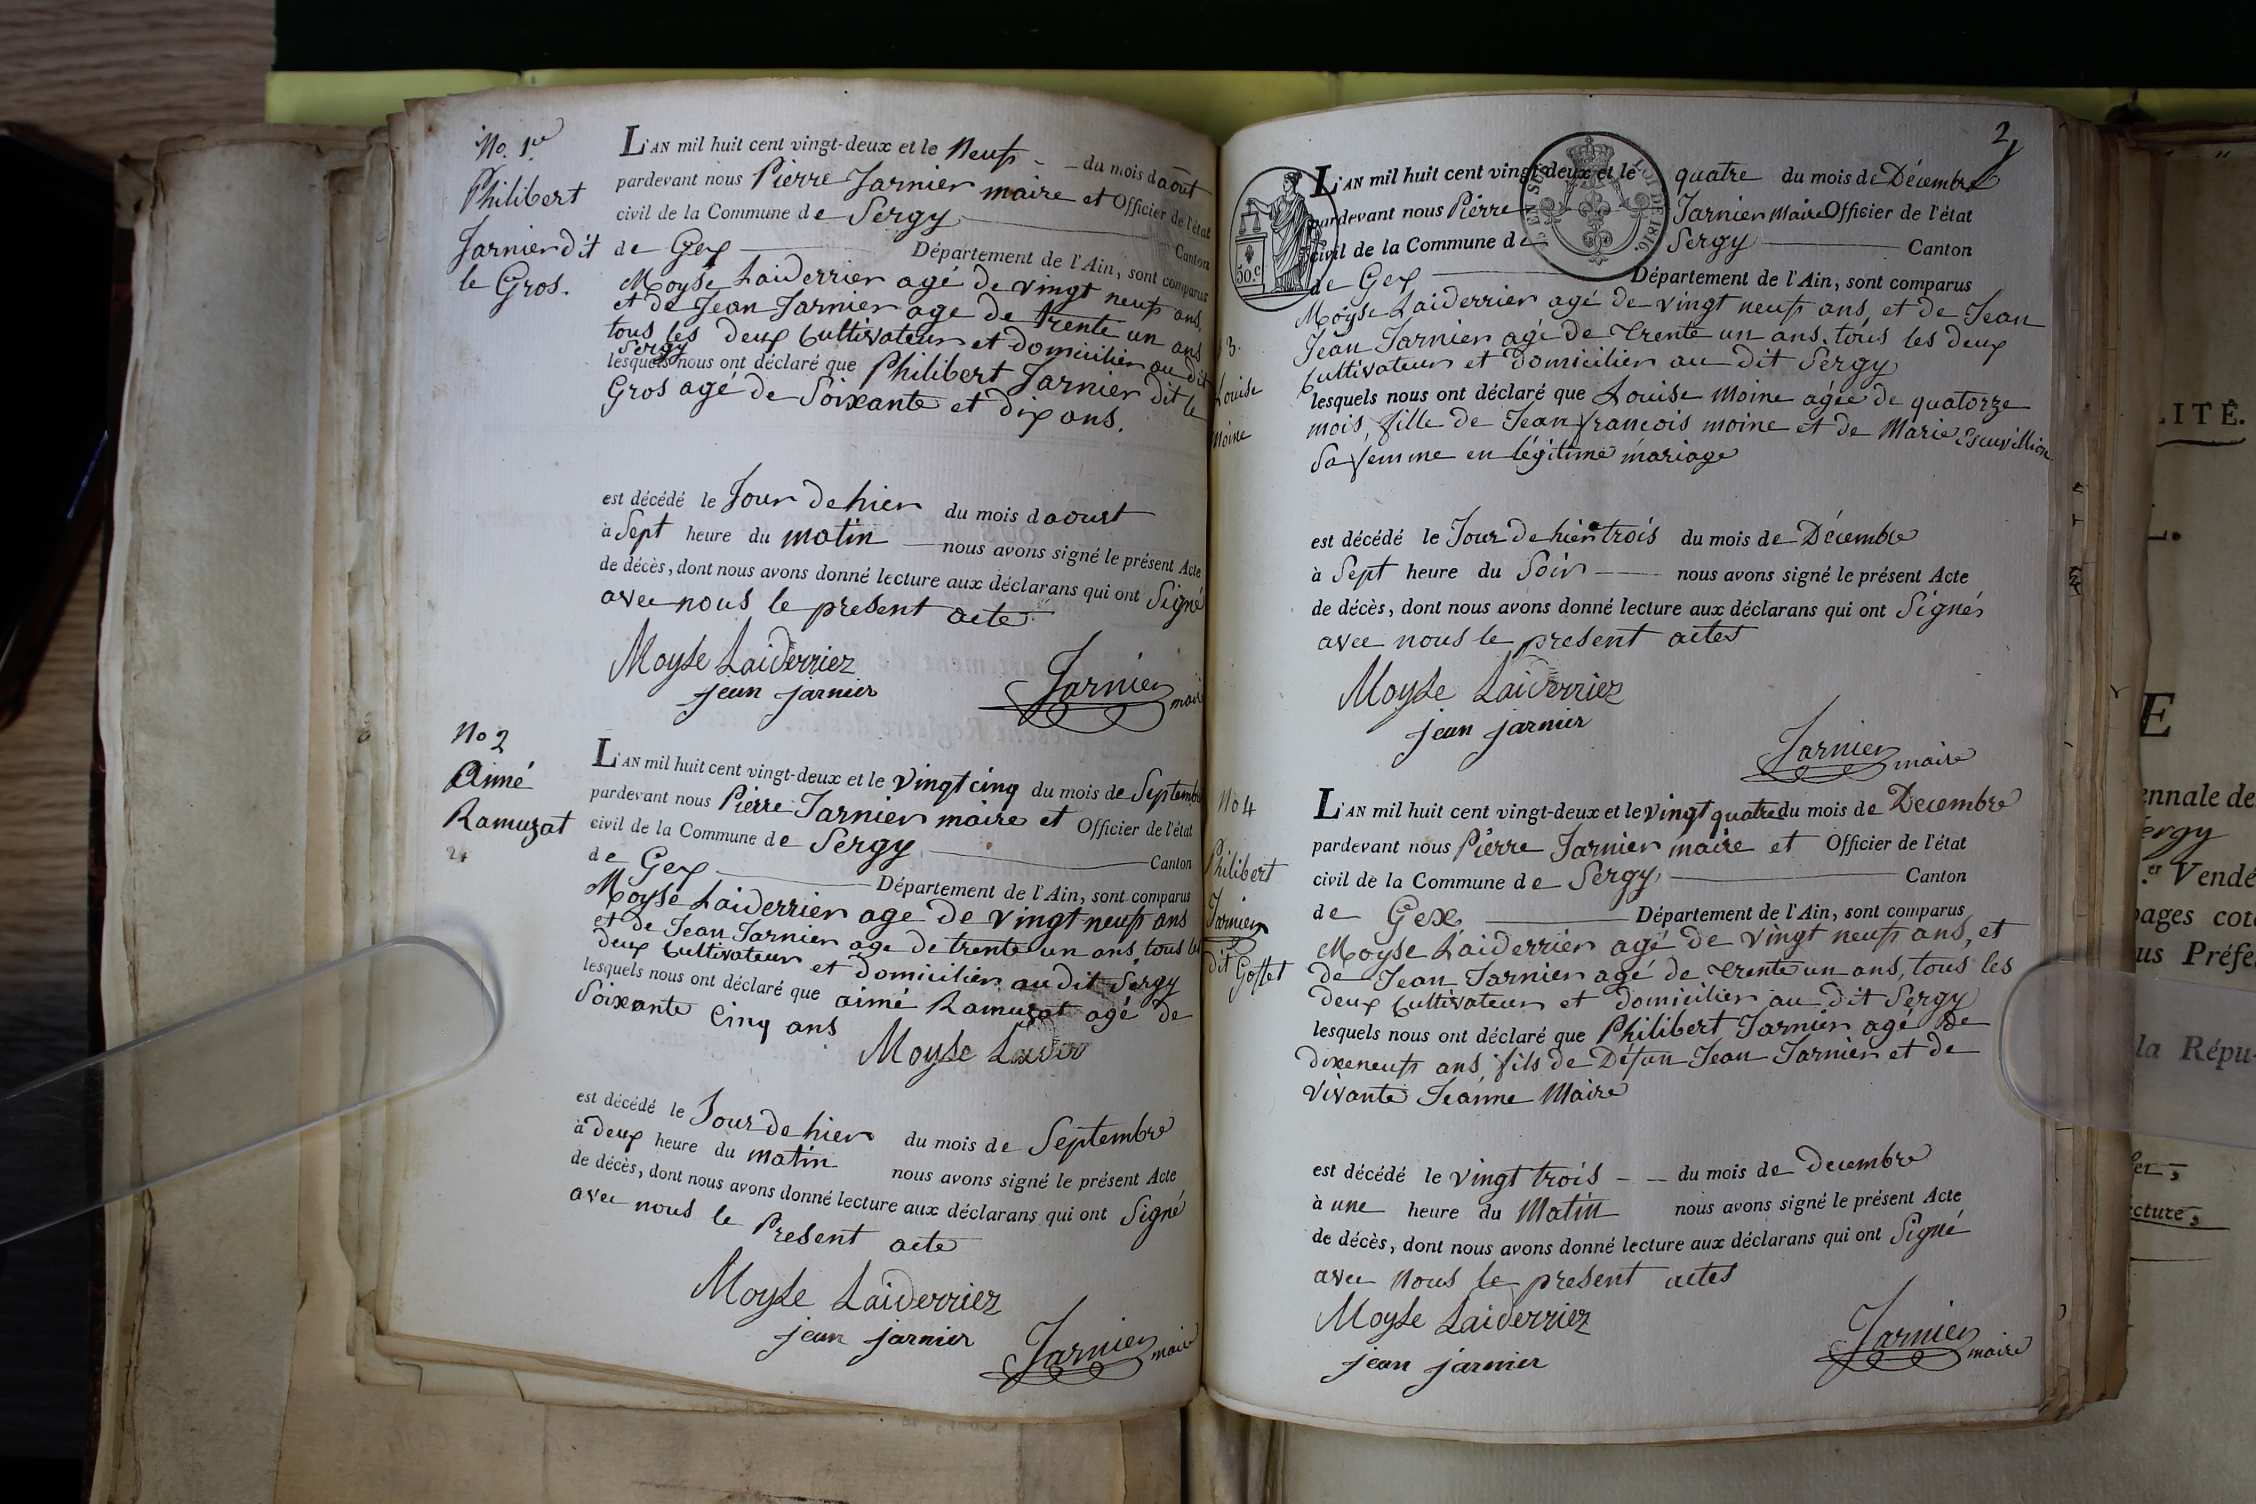 No. 1er
Philibert
Jarnier dit
le Gros.
L'AN mil huit cent vingt-deux et le Neuf du mois d'aout
pardevant nous Pierre Jarnier maire et Officier de l'état
civil de la Commune de Sergy Canton
de Gex Département de l'Ain, sont comparus
Moyse Laiderrier agé de vingt neuf ans,
et de Jean Jarnier age de trente un ans
tous les deux Cultivateur et domicilier au dit
Sergy
lesquels nous ont déclaré que Philibert Jarnier dit le
Gros agé de Soixante et dix ans.
est décédé le Jour de hier du mois d aoust
à Sept heure du matin nous avons signé le présent Acte
de décès, dont nous avons donné lecture aux déclarans qui ont Signé
avec nous le present acte
Moyse Laiderriez
jean jarnier
Jarnier maire
No 2
Aimé
Ramuzat
24
L'AN mil huit cent vingt-deux et le vingt cinq du mois de Septembre
pardevant nous Pierre Jarnier maire et Officier de l'état
civil de la Commune de Sergy Canton
de Gex Département de l'Ain, sont comparus
Moyse Laiderrier age de vingt neuf ans
et de Jean Jarnier age de trente un ans, tous les
deux Cultivateur et domicilier au dit Sergy
lesquels nous ont déclaré que aimé Ramuzat agé de
Soixante Cinq ans
Moyse
est décédé le Jour de hier du mois de Septembre
à deux heure du matin nous avons signé le présent Acte
de décès, dont nous avons donné lecture aux déclarans qui ont Signé
avec nous le Present acte
Moyse Laiderriez
jean jarnier
Jarnier maire
2
50.c
EN SUS
LOI DE 1816.
3.
Louise
Moine
L'AN mil huit cent vingt-deux et le quatre du mois de Décembre
pardevant nous Pierre Jarnier Maire Officier de l'état
civil de la Commune de Sergy Canton
de Gex Département de l'Ain, sont comparus
Moyse Laiderrier agé de vingt neuf ans, et de Jean
Jéan Jarnier agé de trente un ans, tous les deux
Cultivateur et Domicilier au dit Sergy
lesquels nous ont déclaré que Louise Moine agée de quatorze
mois, fille de Jean françois moine et de Marie Escuvillion
Sa femme en légitime mariage
est décédé le Jour de hier trois du mois de Décembre
à Sept heure du Soir nous avons signé le présent Acte
de décès, dont nous avons donné lecture aux déclarans qui ont Signés
avec nous le present actes
Moyse Laiderriez
jean jarnier
Jarnier maire
No 4
Philibert
Jarnier
dit Goffet
L'AN mil huit cent vingt-deux et le vingt quatre du mois de Decembre
pardevant nous Pierre Jarnier maire et Officier de l'état
civil de la Commune de Sergy Canton
de Gex Département de l'Ain, sont comparus
Moyse Laiderrier agé de vingt neuf ans, et
de Jean Jarnier agé de trente un ans, tous les
deux Cultivateur et domicilier au dit Sergy
lesquels nous ont déclaré que Philibert Jarnier agé de
dixeneuf ans, fils de Défun Jean Jarnier et de
vivante Jeanne Maire
est décédé le vingt trois du mois de Decembre
à une heure du Matin nous avons signé le présent Acte
de décès, dont nous avons donné lecture aux déclarans qui ont Signé
avec nous le present actes
Moyse Laiderriez
jean jarnier
Jarnier maire
LITÉ.
E
ennale de
ergy
er Vendé
pages coté
us Préfe
la Répu-
cture,